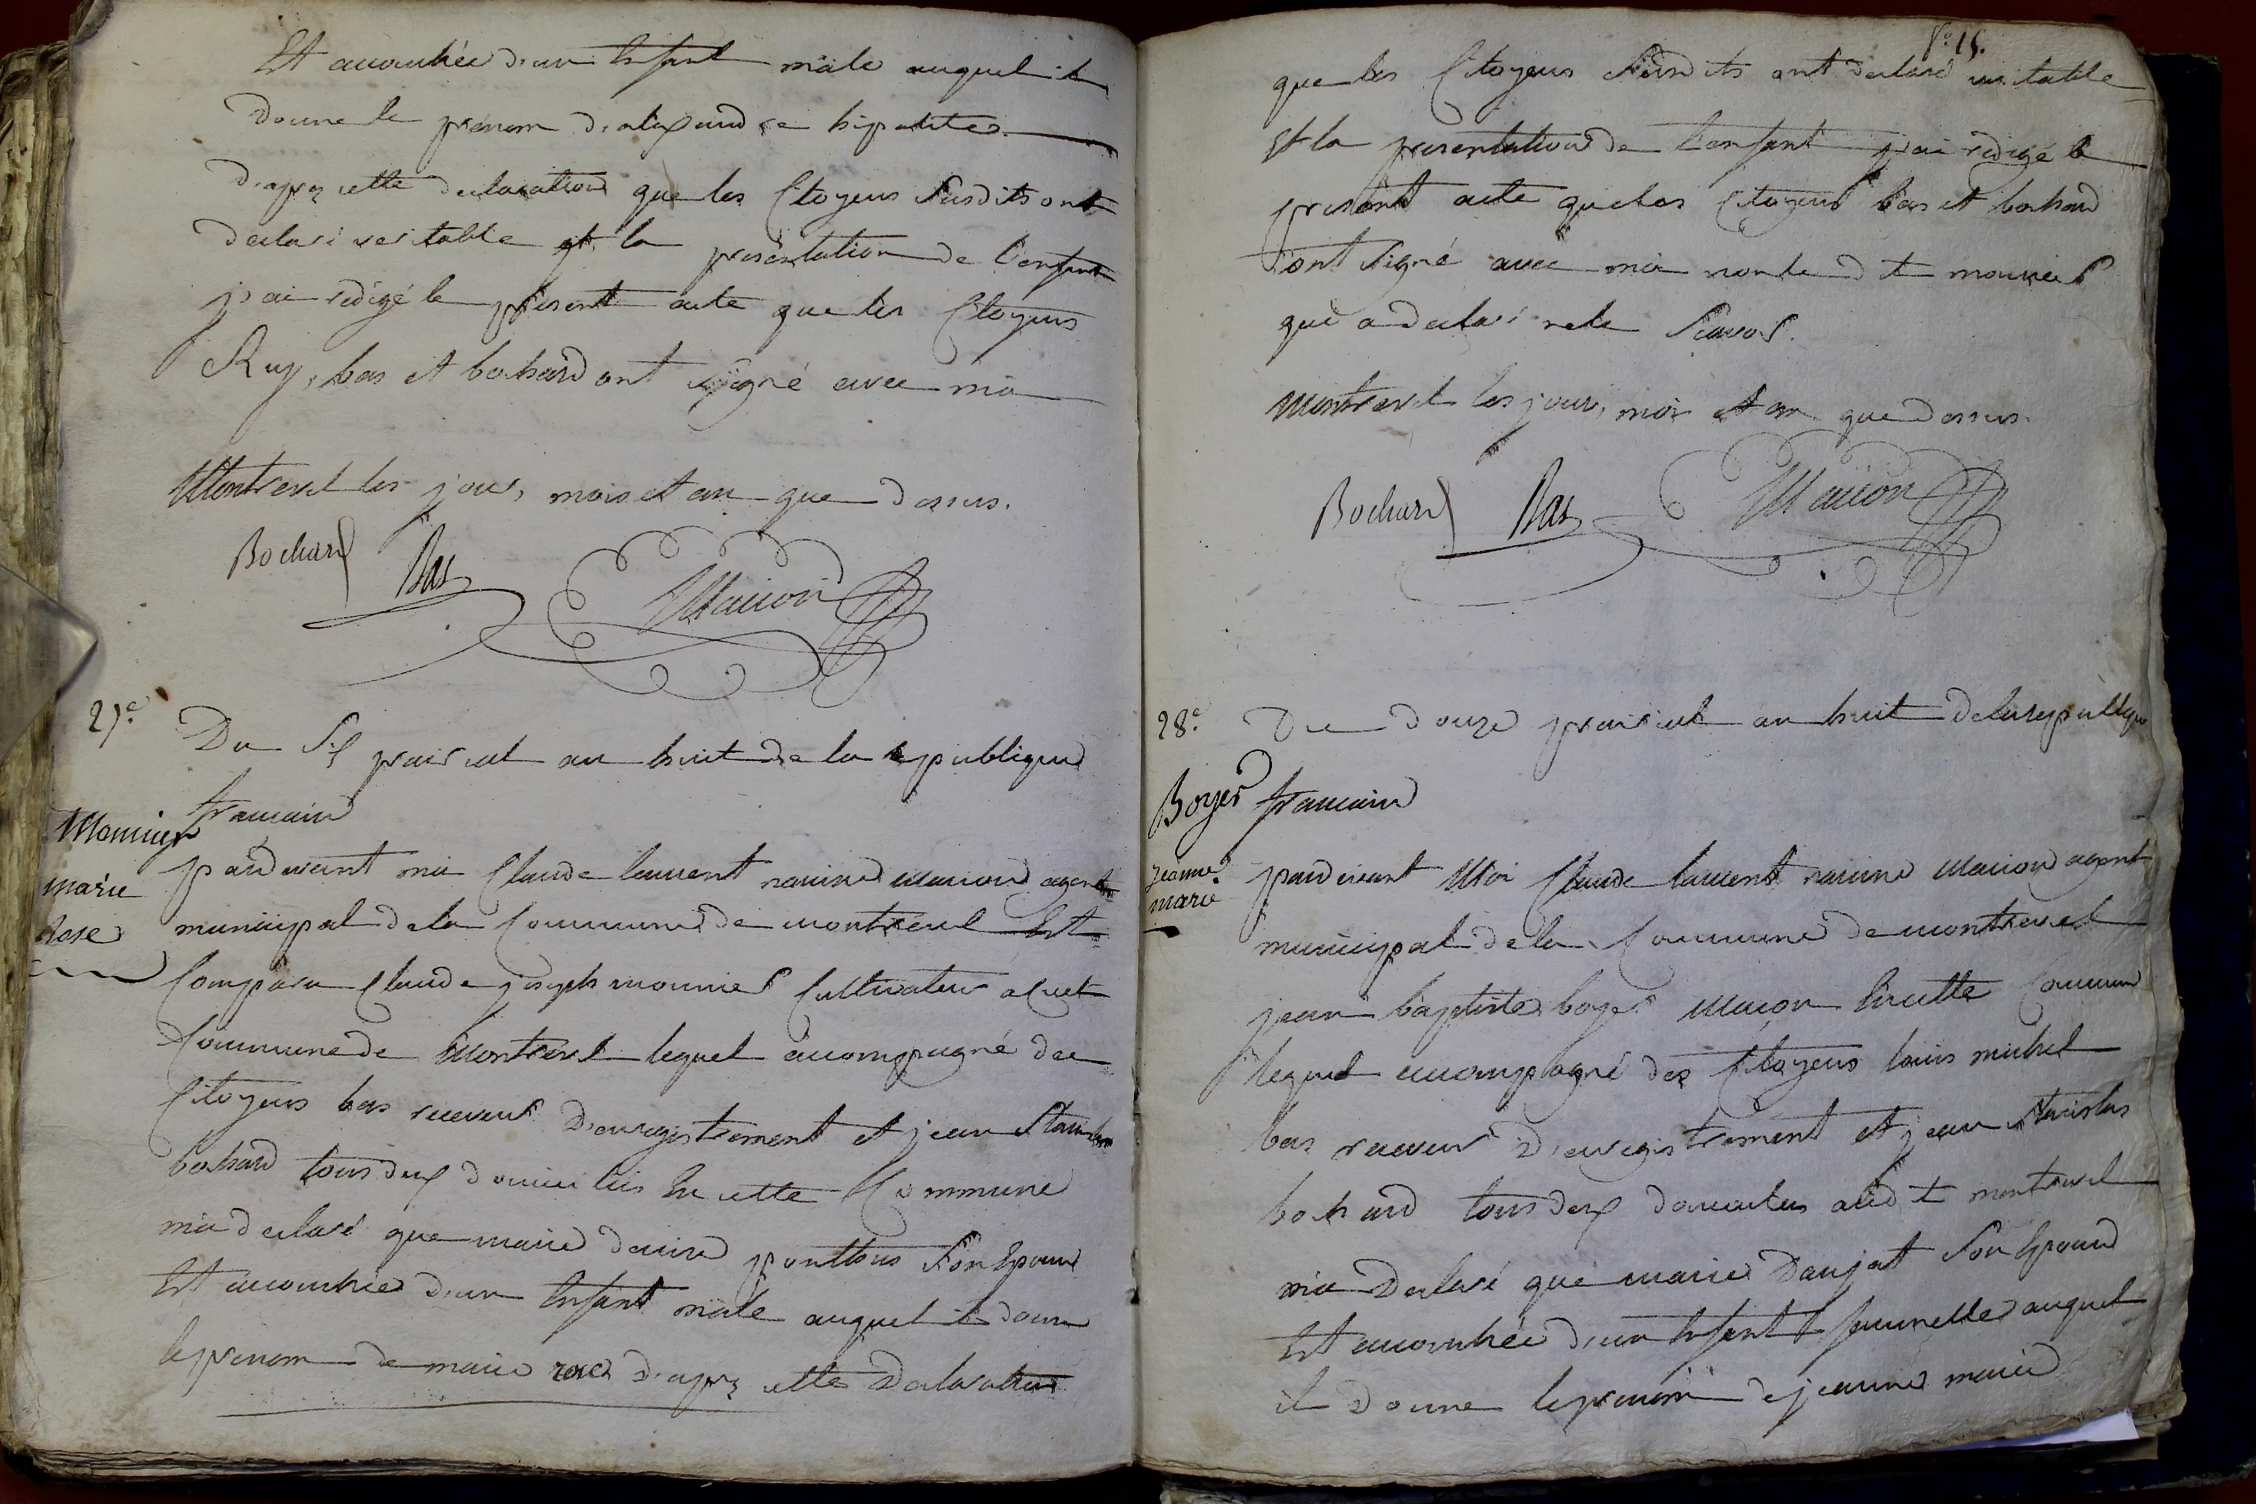 Est accouchée d'un Enfant mâle auquel il
donne le prénom d'alexandre hipolite.
d'aprez cette declaration que les Citoyens susdits ont
declaré veritable et la presentation de l'enfant
j'ai redigé le present acte que les Citoyens
Ruy, bas et bochard ont signé avec moi
Montrevel les jour, mois et an que dessus.
Bochard Bas
27.e
Du six prairial an huit de la republique
francaise
Monnier
marie
rose
pardevant moi Claude laurent agent
municipal de la Commune de montrevel Est
Comparu Claude joseph monnier Cultivateur a cette
Commune de Montrevel lequel accompagné des
Citoyens bas receveur d'enregistrement et jean Stanislas
bochard tous deux domicilies En cette Commune
m'a declaré que marie son Epouse
Est accouchée d'un Enfant mâle auquel il donne
le prenom de marie rose d'aprez cette declaration
f.o 15.
que les Citoyens susdits ont declaré veritable
Et la presentation de l'enfant j'ai redigé le
present acte que les Citoyens bas et bochard
ont signé avec moi non led t monnier
qui a declaré ne le scavoir.
Montrevel les jour, mois et an que dessus.
Bochard Bas
28.e
Du douze prairial an huit de la republique
francaise
Boyer
jeanne
marie
pardevant Moi Claude laurent agent
municipal de la Commune de montrevel
jean baptiste boyer Maçon En cette Commune
lequel accompagné des Citoyens louis michel
bas receveur d'enregistrement et jean stanislas
bochard tous deux domicilies aud t montrevel
m'a declaré que marie Danjat son Epouse
Est accouchée d'un Enfant femmelle auquel
il donne le prenom de jeanne marie